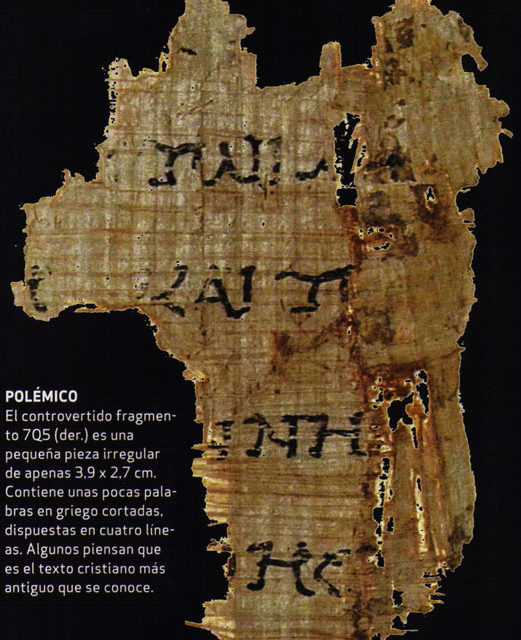 ΤΩΙ
ΚΑΙ Τ
ΝΝΗ
ΗϹ
POLÉMICO
El controvertido fragmen-
to 7Q5 (der.) es una
pequeña pieza irregular
de apenas 3,9 x 2,7 cm.
Contiene unas pocas pala-
bras en griego cortadas,
dispuestas en cuatro líne-
as. Algunos piensan que
es el texto cristiano más
antiguo que se conoce.